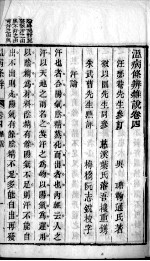 溫病條辨雜說卷四
汪瑟菴先生參訂 吳瑭鞠通氏著
徵以園先生同參 慈谿葉氏 重鐫
朱武曹先生點評 校字
汗論
汗也者合陽氣陰精蒸化而出者也內經云人之
汗以天地之雨名之蓋汗之為物以陽氣為運用
以陰精為材料陰精有餘陽氣不足則汗不能自
出不出則死陽氣有餘陰精不足多能自出再發